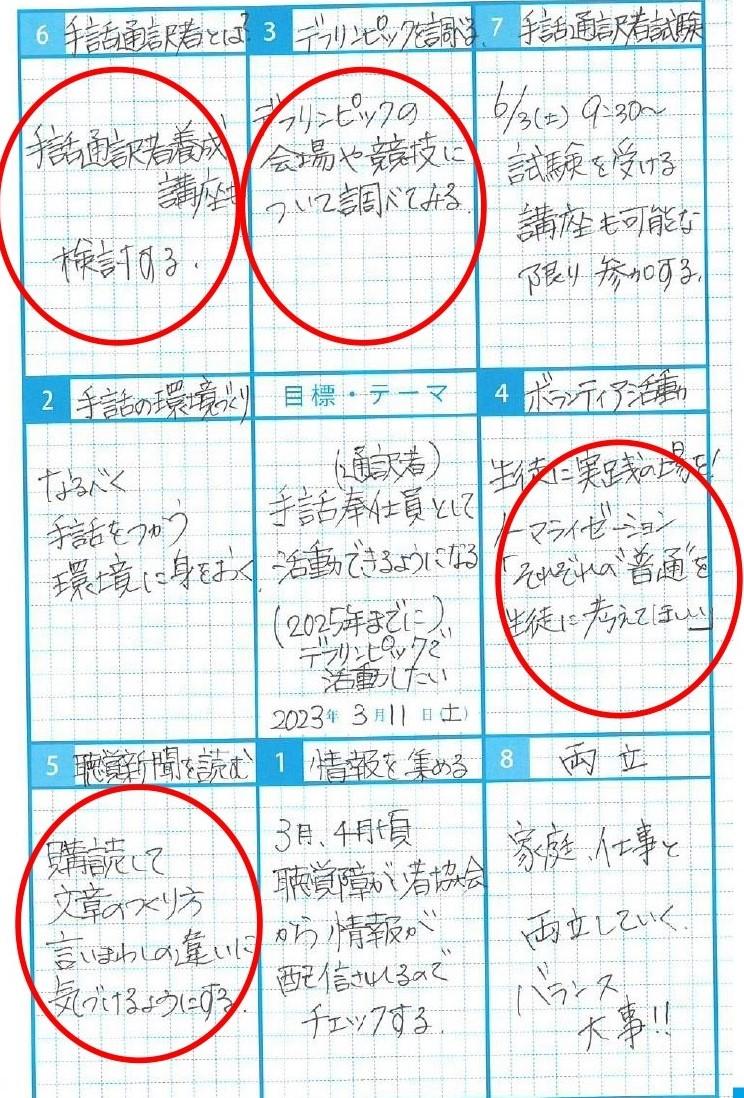 6 手話通訳者とは?
手話通訳者養成
講座も
検討する.
3 デフリンピックを調べる.
デフリンピックの
会場や競技に
ついて調べてみる.
7 手話通訳者試験
6/3(土) 9:30〜
試験を受ける
講座も可能な
限り参加する.
2 手話の環境づくり
なるべく
手話をつかう
環境に身をおく.
目標・テーマ
(通訳者)
手話奉仕員として
活動できるようになる
(2025年までに)
デフリンピックで
活動したい
2023年 3月11日(土)
4 ボランティア活動
生徒に実践の場を!
ノーマライゼーション
「それぞれの"普通"を
生徒に考えてほしい」
5 聴覚新聞を読む
購読して
文章のつくり方
言いまわしの違いに
気づけるようにする.
1 情報を集める
3月、4月頃
聴覚障がい者協会
から情報が
配信されるので
チェックする.
8 両立
家庭、仕事と
両立していく.
バランス
大事!!